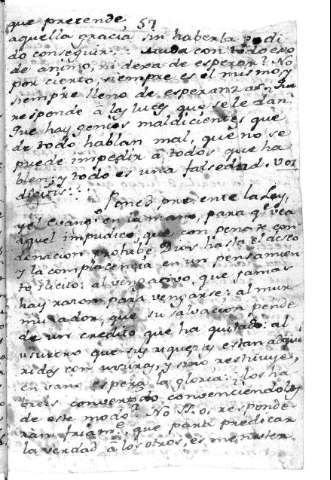 que pretende 57
aquella gracia sin haberla podi
do conseguir: Muda con todo eso
de animo, ni dexa de esperar? No
por cierto, siempre es el mismo, y
siempre lleno de esperanzas. Que
responde à las luces que se le dan?
Que hay genios maldicientes que
de todo hablan mal, que no se
puede impedir à todos que ha
blen, y todo es una falsedad. Vos
dicitis:
Poned presente la Ley,
y el Evang en la mano, para q vea
aquel impudico, que con pena de con
denacion prohibe Dios hasta el deseo
y la complacencia en un pensamien
to ilicito: al vengativo, que jamas
hay razon para vengarse: al mur
murador, que su salvacion pende
de un credito que ha quitado: al
usurero que sus riquezas estan adqui
ridas con usuras, y si no restituye,
en vano espera la gloria: los ha
breis convertido, convenciendolos
de este modo? No SS. os responde
ran friam.e que para predicar
la verdad à los otros, es menester